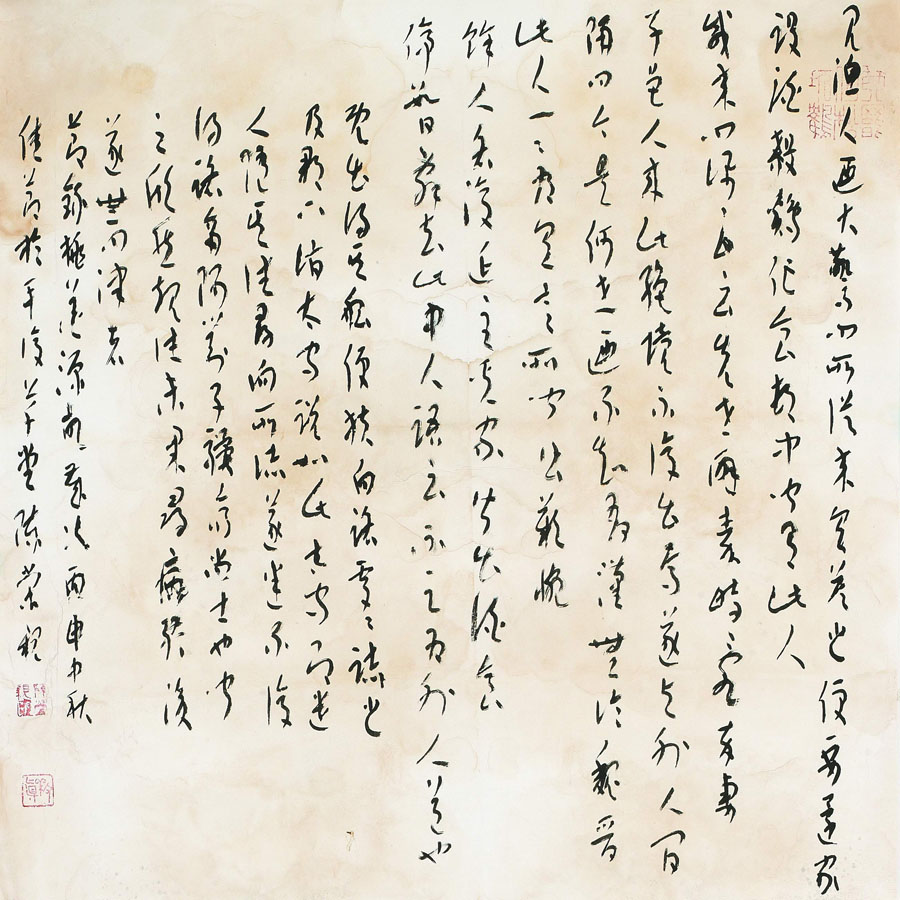 見漁人迺大驚問所從來具答之便要還家
設酒殺雞作食邨中聞有此人
咸來問訊自云先世避秦時亂率妻
子邑人來此絕境不復出焉遂與外人間
隔問今是何世迺不知有漢無論魏晉
此人一一為具言所聞皆歎惋
餘人各復延至其家皆出酒食
停數日辭去此中人語云不足為外人道也
既出得其船便扶向路處處誌之
及郡下詣太守說如此太守即遣
人隨其往尋向所誌遂迷不復
得路南陽劉子驥高尚士也聞
之欣然規往未果尋病終後
遂無問津者
節錄桃花源 歲次丙申中秋
佳節於平復草堂陳榮